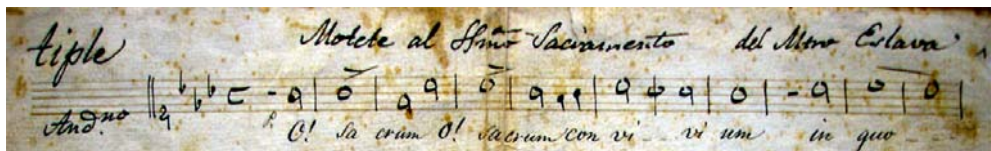 tiple
Motete al SSmo Sacramento del Mtro Eslava
And.no
O! sa crum O! sacrum con vi - - vi um in quo - -